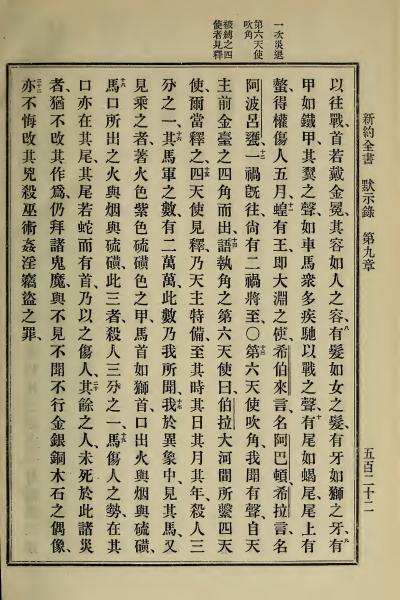 新約全書　默示錄　第九章　五百二十二
一次災退
第六天使
吹角
被縛之四
使者見釋
以往戰、首若戴金冕、其容如人之容、八有髮如女之髮、有牙如獅之牙、九有
甲如鐵甲、其翼之聲、如車馬衆多疾馳以戰之聲、十有尾如蝎、尾上有
螫、得權傷人五月、十一蝗有王、卽大淵之使、希伯來言、名阿巴頓、希拉言、名
阿波呂甕、十二一禍旣往、尙有二禍將至、〇十三第六天使吹角、我聞有聲、自天
主前金臺之四角而出、十四語執角之第六天使曰、伯拉大河間所繫四天
使、爾當釋之、十五四天使見釋、乃天主特備、至其時其日其月其年、殺人三
分之一、十六其馬軍之數、有二萬萬、此數乃我所聞、十七我於異象中、見其馬、又
見乘之者、著火色紫色硫磺色之甲、馬首如獅首、口出火與烟與硫磺、
十八馬口所出之火與烟與硫磺、此三者、殺人三分之一、十九馬傷人之勢、在其
口、亦在其尾、其尾若蛇而有首、乃以之傷人、二十其餘之人、未死於此諸災
者、猶不改其作爲、仍拜諸鬼魔、與不見不聞不行金銀銅木石之偶像、
二十一亦不悔改其兇殺巫術姦淫竊盜之罪、